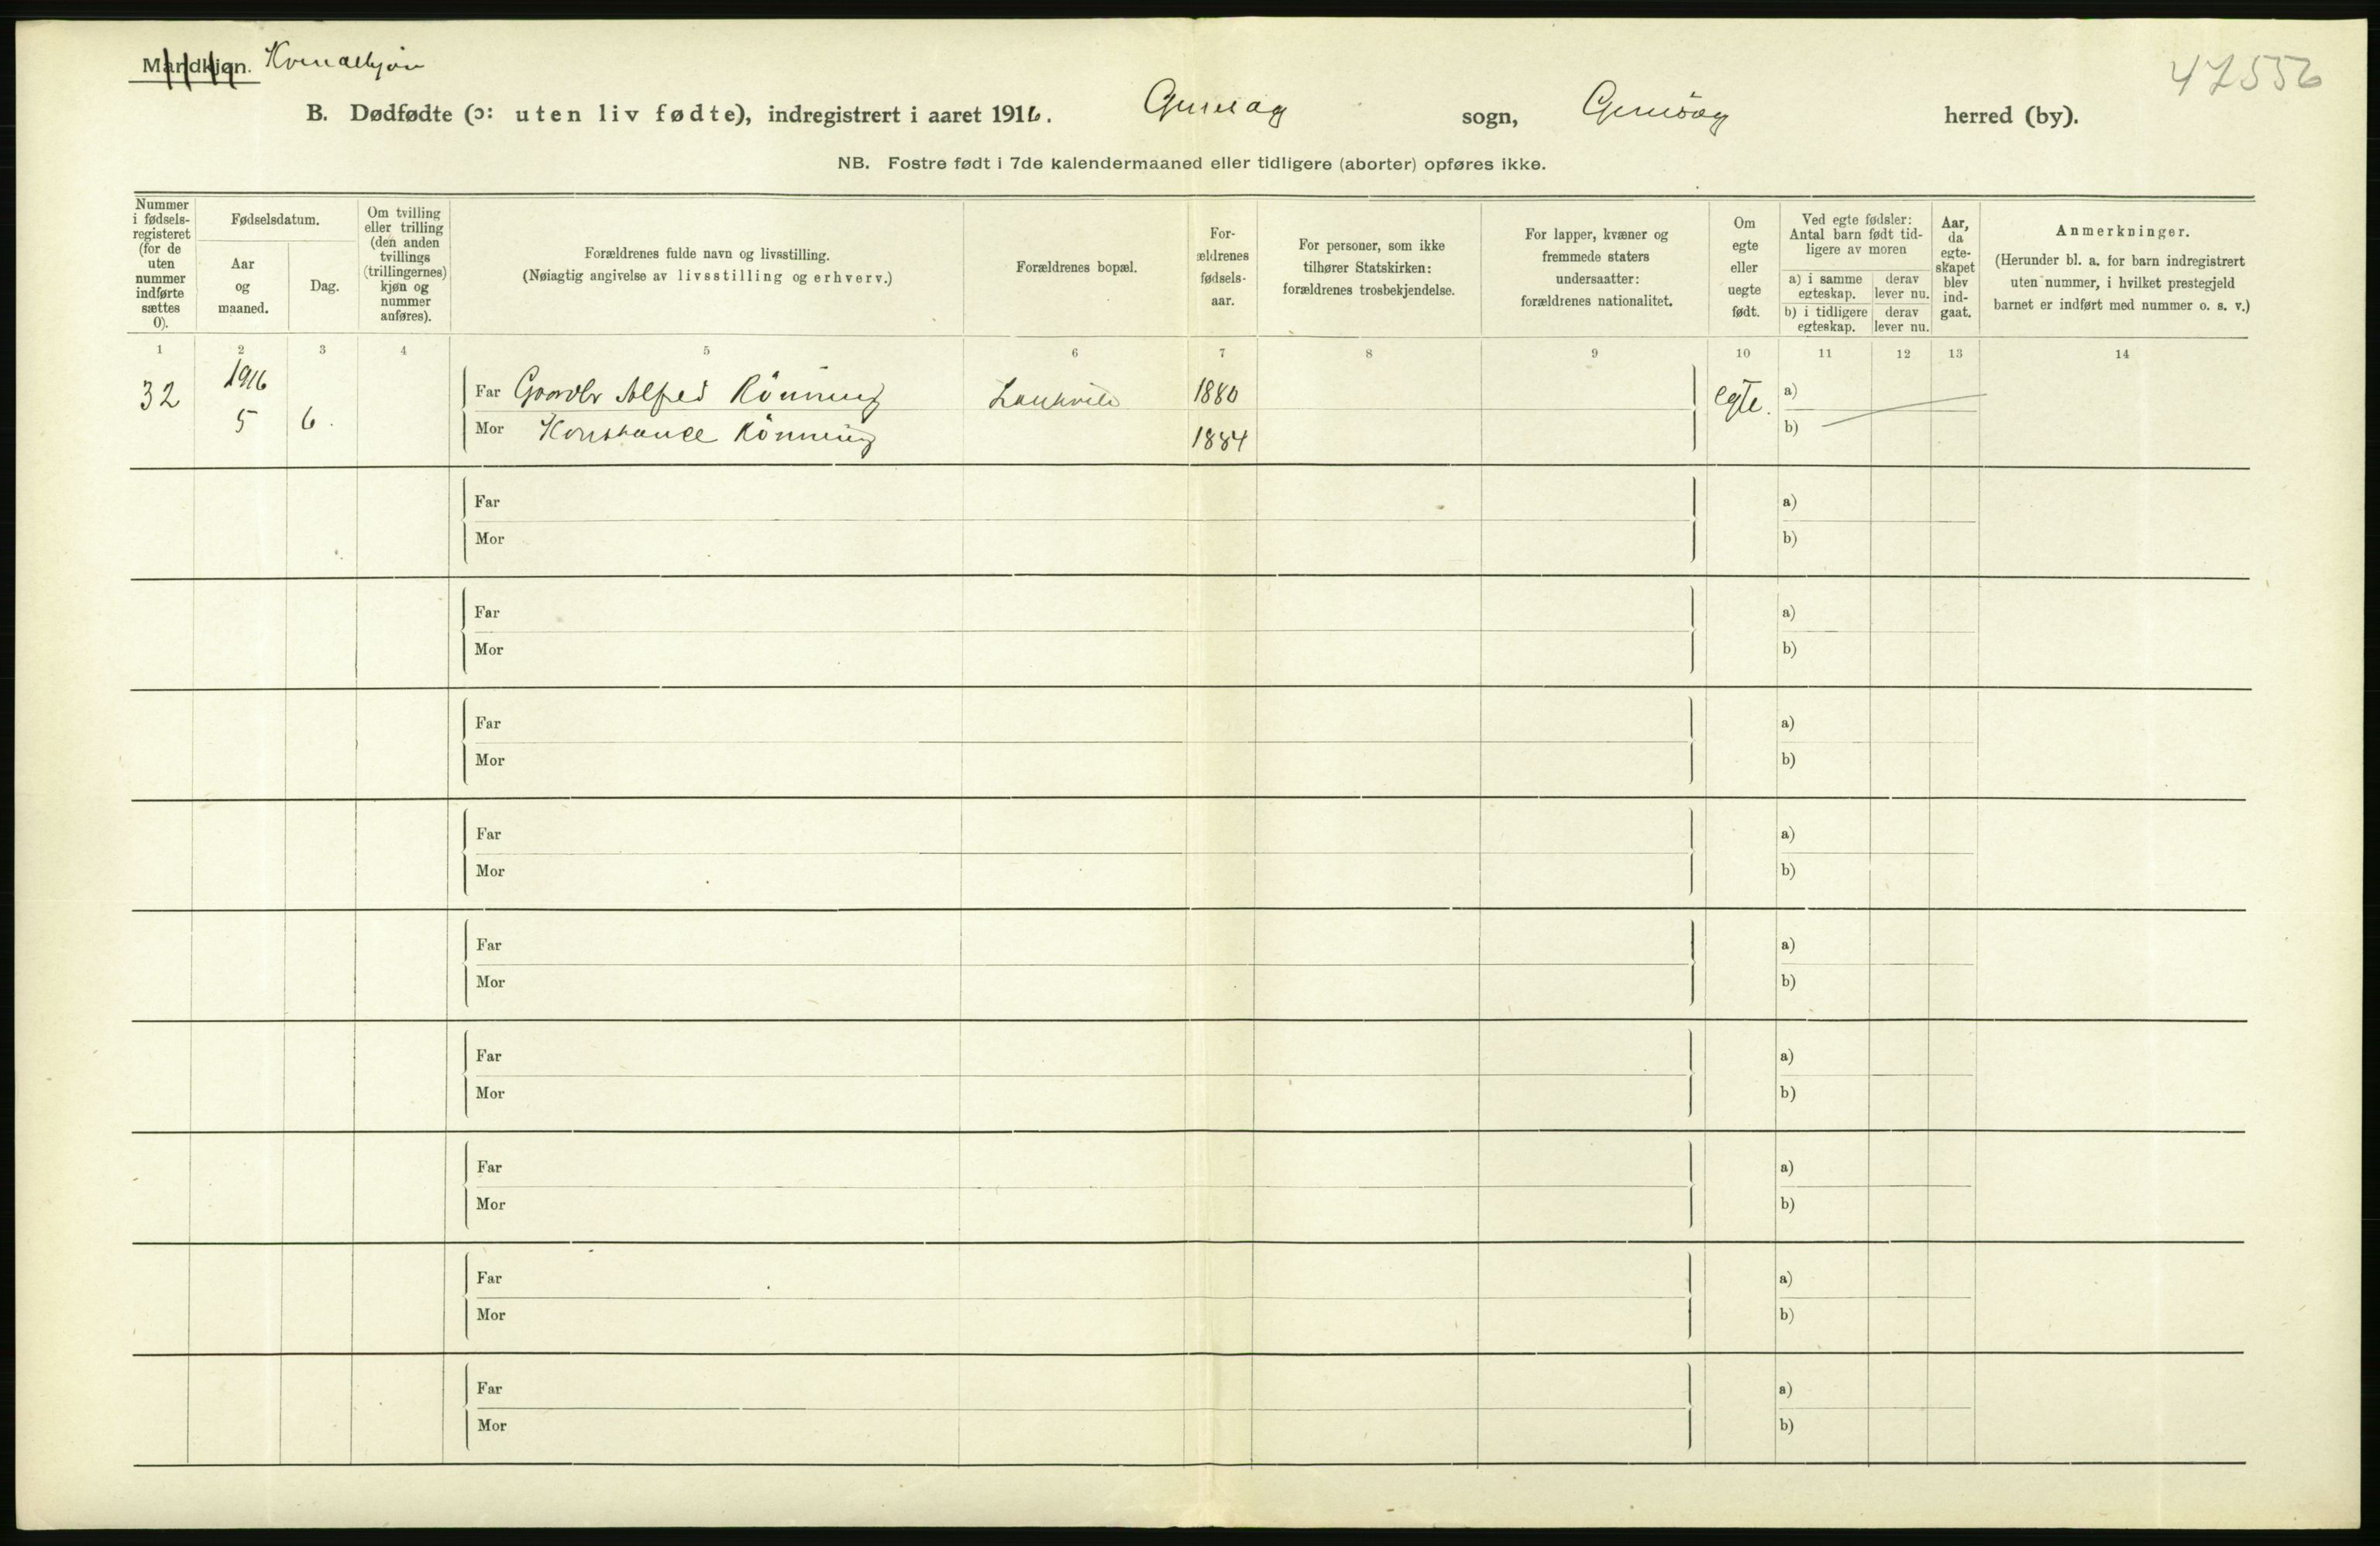 Mandkjøn. Kvindekjøn
47556
B. Dødfødte (ɔ: uten liv fødte), indregistrert i aaret 1916. sogn, herred (by).
NB. Fostre født i 7de kalendermaaned eller tidligere (aborter) opføres ikke.
Nummer
i fødsels-
registeret
(for de
uten
nummer
indførte
sættes
0).
Fødselsdatum.
Aar
og
maaned.
Dag.
Om tvilling
eller trilling
(den anden
tvillings
(trillingernes)
kjøn og
nummer
anføres).
Forældrenes fulde navn og livsstilling.
(Nøiagtig angivelse av livsstilling og erhverv.)
Forældrenes bopæl.
For-
ældrenes
fødsels-
aar.
For personer, som ikke
tilhører Statskirken:
forældrenes trosbekjendelse.
For lapper, kvæner og
fremmede staters
undersaatter:
forældrenes nationalitet.
Om
egte
eller
uegte
født.
Ved egte fødsler:
Antal barn født tid-
ligere av moren
a) i samme
egteskap.
derav
lever nu.
b) i tidligere
egteskap.
derav
lever nu.
Aar,
da
egte-
skapet
blev
ind-
gaat.
Anmerkninger.
(Herunder bl. a. for barn indregistrert
uten nummer, i hvilket prestegjeld
barnet er indført med nummer o. s. v.)
1 2 3 4 5 6 7 8 9 10 11 12 13 14
32 1916 Far Alfred Rönning 1880 egte. a)
5 6. Mor Konstance Rönning 1884 b)
Far a)
Mor b)
Far a)
Mor b)
Far a)
Mor b)
Far a)
Mor b)
Far a)
Mor b)
Far a)
Mor b)
Far a)
Mor b)
Far a)
Mor b)
Far a)
Mor b)